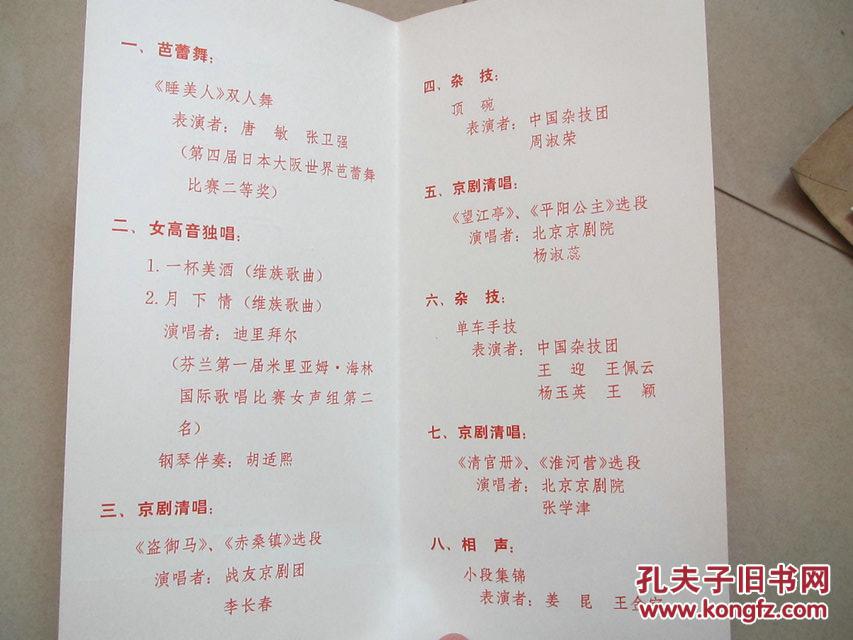 一、芭蕾舞：
《睡美人》双人舞
表演者：唐 敏 张卫强
（第四届日本大阪世界芭蕾舞
比赛二等奖）
二、女高音独唱：
1. 一杯美酒（维族歌曲）
2. 月 下 情（维族歌曲）
演唱者：迪里拜尔
（芬兰第一届米里亚姆·海林
国际歌唱比赛女声组第二
名）
钢琴伴奏：胡适熙
三、京剧清唱：
《盗御马》、《赤桑镇》选段
演唱者：战友京剧团
李长春
四、杂 技：
顶 碗
表演者：中国杂技团
周淑荣
五、京剧清唱：
《望江亭》、《平阳公主》选段
演唱者：北京京剧院
杨淑蕊
六、杂 技：
单车手技
表演者：中国杂技团
王 迎 王佩云
杨玉英 王 颖
七、京剧清唱：
《清官册》、《淮河营》选段
演唱者：北京京剧院
张学津
八、相 声：
小段集锦
表演者：姜 昆 王金
孔夫子旧书网
www.kongfz.com